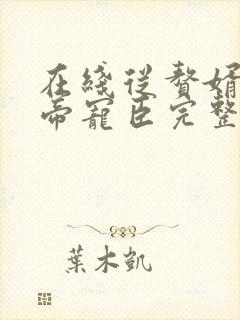 在綫從贅婿
帝寵臣完整
葉木凱